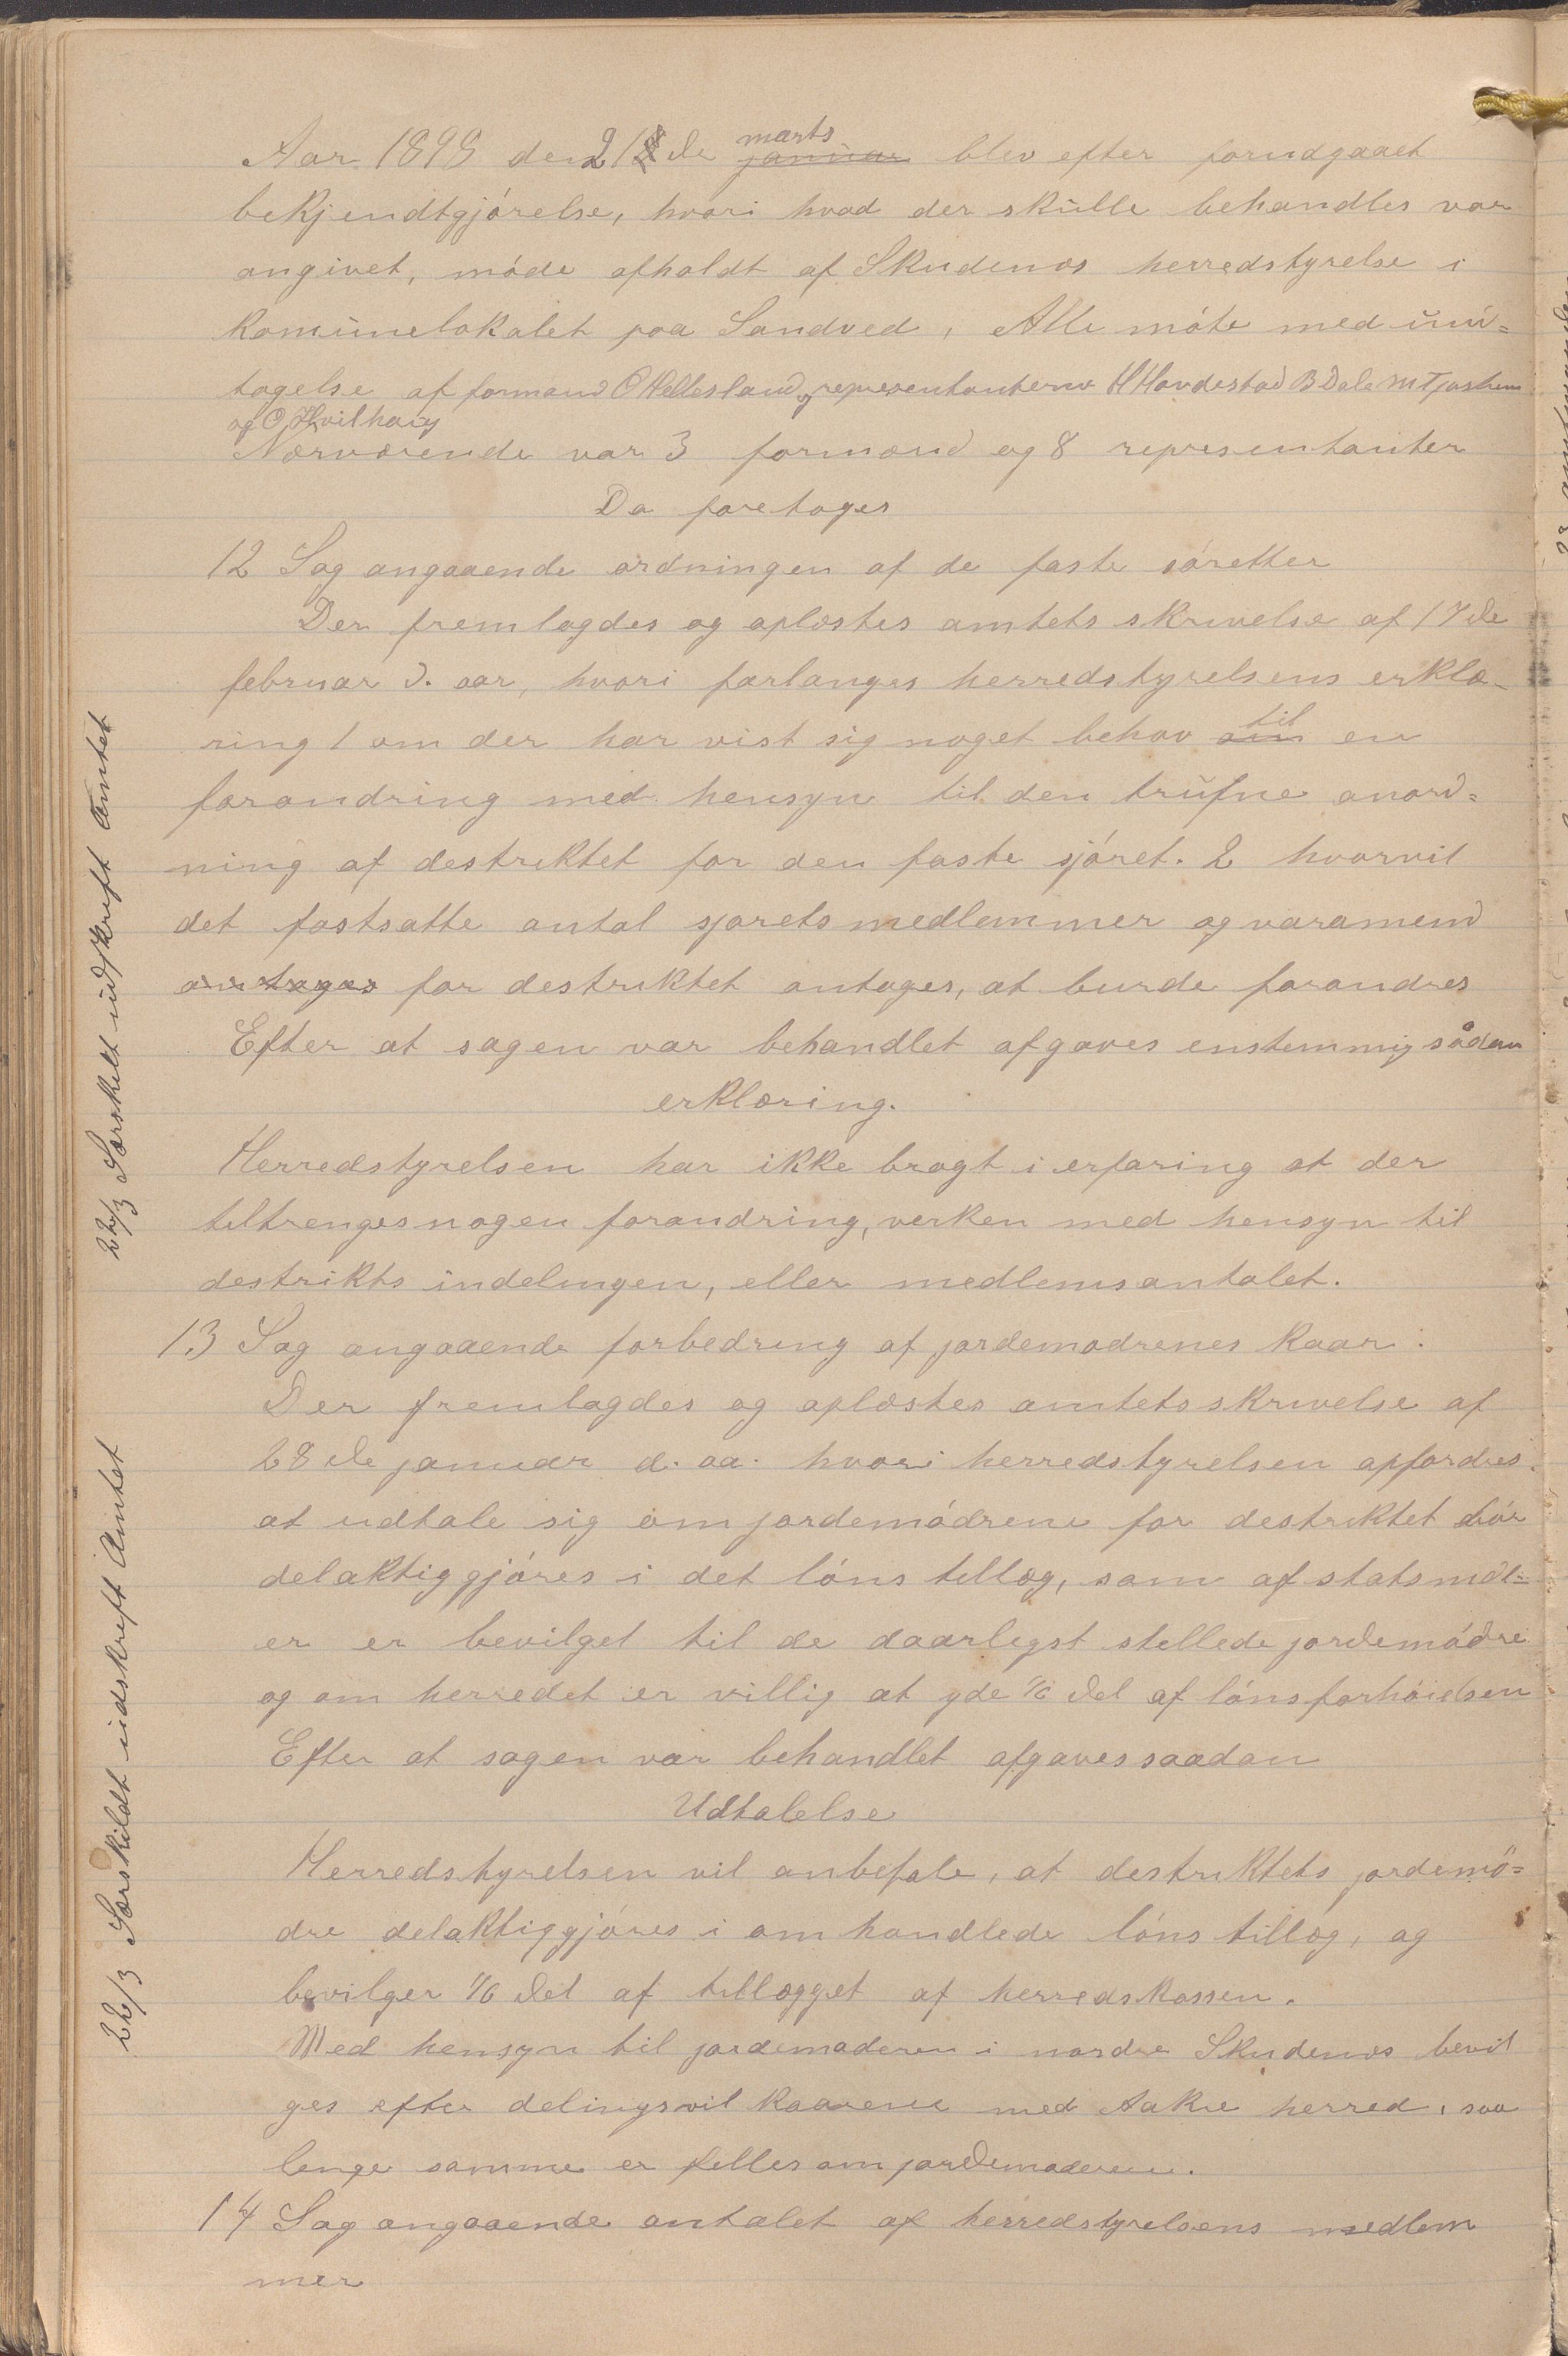 Aar 1898 den 21de marts januar blev efter forudgaaet
bekjendtgjórelse, hvori hvad der skulle behandles var
angivet, móde afholdt af Skudenæs herredstyrelse i
Komunelokalet paa Sandved, Alle móte med und=
tagelse af formand O Hellesland og representanterne H Hovdestad B Dale M Tjøsheim
og O Hvilhaug
Nærværende var 3 formænd og 8 representanter
Da foretoges
12 Sag angaaende ordningen af de faste sóretter
Der fremlagdes og oplæstes amtets skrivelse af 17de
februar d. aar, hvori forlanges herredstyrelsens erklæ-
ring 1 om der har vist sig noget behov om til en
forandring med hensyn til den trufne anord=
ning af destriktet for den faste sjóret. 2 hvorvit
det fastsatte antal sjorets medlemmer og varamend
antages for destriktet antages, at burde forandres
Efter at sagen var behandlet afgaves enstemmig sådan
erklæring.
Herredstyrelsen har ikke bragt i erfaring at der
tiltrenges nogen forandring, verken med hensyn til
destrikts indelingen, eller medlemsantalet.
13 Sag angaaende forbedring af jordemodrenes Kaar.
Der fremlagdes og oplæstes amtets skrivelse af
28de januar d. aa. hvori herredstyrelsen opfordres
at udtale sig om jordemódrene for destriktet bór
delaktiggjóres i det lóns tillæg, som af statsmidl=
er er bevilget til de daarligst stellede jordemódre
og om herredet er villig at yde 1/6 del af lónsforhóielsen
Efter at sagen var behandlet afgaves saadan
Udtalelse
Herredstyrelsen vil anbefale, at destriktets jordemö=
dre delaktiggjóres i omhandlede lóns tillæg, og
bevilger 1/6 del af tillægget af herredskassen.
Med hensyn til jordemoderen i nordre Skudenæs bevil
ges efter delingsvilkaarene med Aakre herred, saa
lenge samme er felles om jordemoderen.
14 Sag angaaende antalet af herredstyrelsens medlem
mer
22/3 Særskilt udskrift Amtet
22/3 Særskildt udskrift Amtet